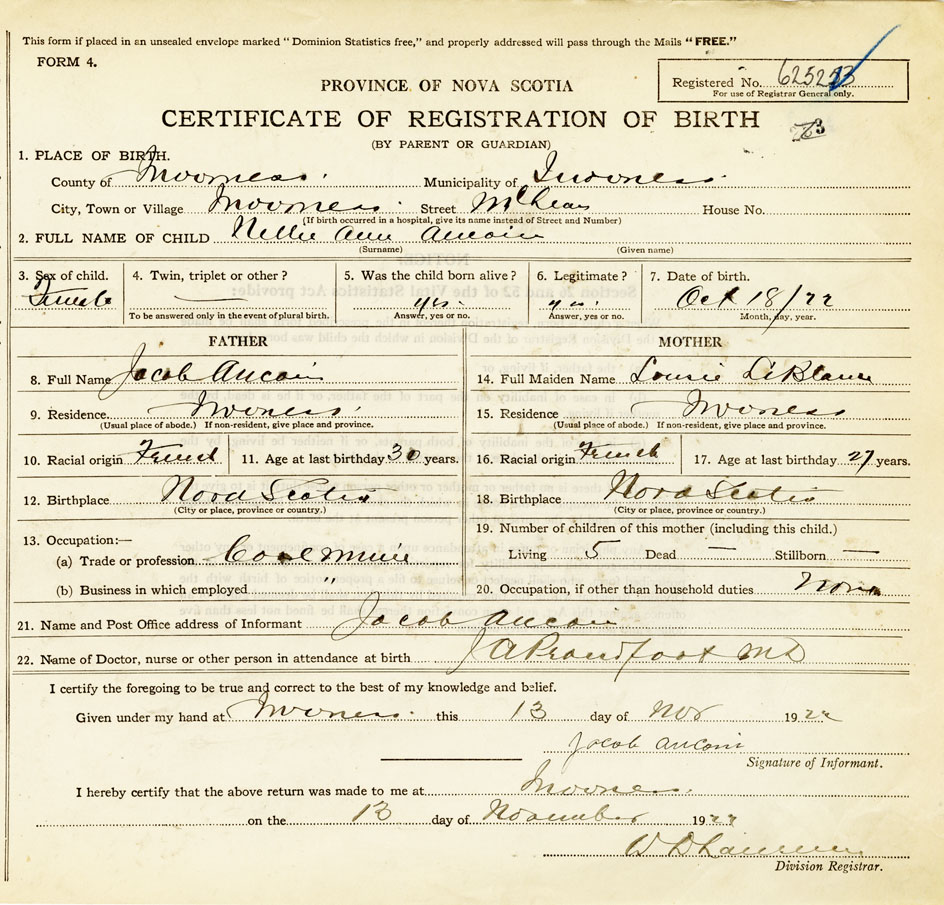 This form if placed in an unsealed envelope marked "Dominion Statistics free," and properly addressed will pass through the Mails "FREE."
FORM 4.
Registered No.
For use of Registrar General only.
PROVINCE OF NOVA SCOTIA
CERTIFICATE OF REGISTRATION OF BIRTH
(BY PARENT OR GUARDIAN)
1. PLACE OF BIRTH.
County of Inverness. Municipality of Inverness.
City, Town or Village Inverness. Street McLean House No.
(If birth occurred in a hospital, give its name instead of Street and Number)
2. FULL NAME OF CHILD Nellie Ann Aucoin
(Surname) (Given name)
3. Sex of child. 4. Twin, triplet or other? 5. Was the child born alive? 6. Legitimate? 7. Date of birth.
Female — yes. yes. Oct 18/22
To be answered only in the event of plural birth. Answer, yes or no. Answer, yes or no. Month, day, year.
FATHER MOTHER
8. Full Name Jacob Aucoin 14. Full Maiden Name Louise LeBlanc
9. Residence Inverness. 15. Residence Inverness
(Usual place of abode.) If non-resident, give place and province. (Usual place of abode.) If non-resident, give place and province.
10. Racial origin French 11. Age at last birthday 30 years. 16. Racial origin French 17. Age at last birthday 27 years.
12. Birthplace Nova Scotia 18. Birthplace Nova Scotia
(City or place, province or country.) (City or place, province or country.)
19. Number of children of this mother (including this child.)
13. Occupation:—
(a) Trade or profession Coal Miner Living 5 Dead — Stillborn —
(b) Business in which employed " 20. Occupation, if other than household duties None
21. Name and Post Office address of Informant Jacob Aucoin
22. Name of Doctor, nurse or other person in attendance at birth J A Proudfoot MD
I certify the foregoing to be true and correct to the best of my knowledge and belief.
Given under my hand at Inverness. this 13 day of Nov 1922
Jacob Aucoin
Signature of Informant.
I hereby certify that the above return was made to me at Inverness.
on the 13 day of November 1922
W D
Division Registrar.